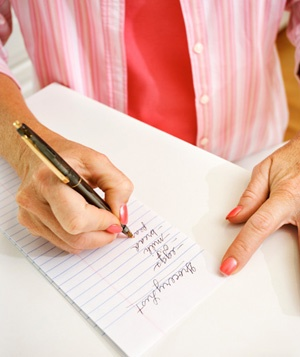 Grocery List
- eggs
- milk
- bread